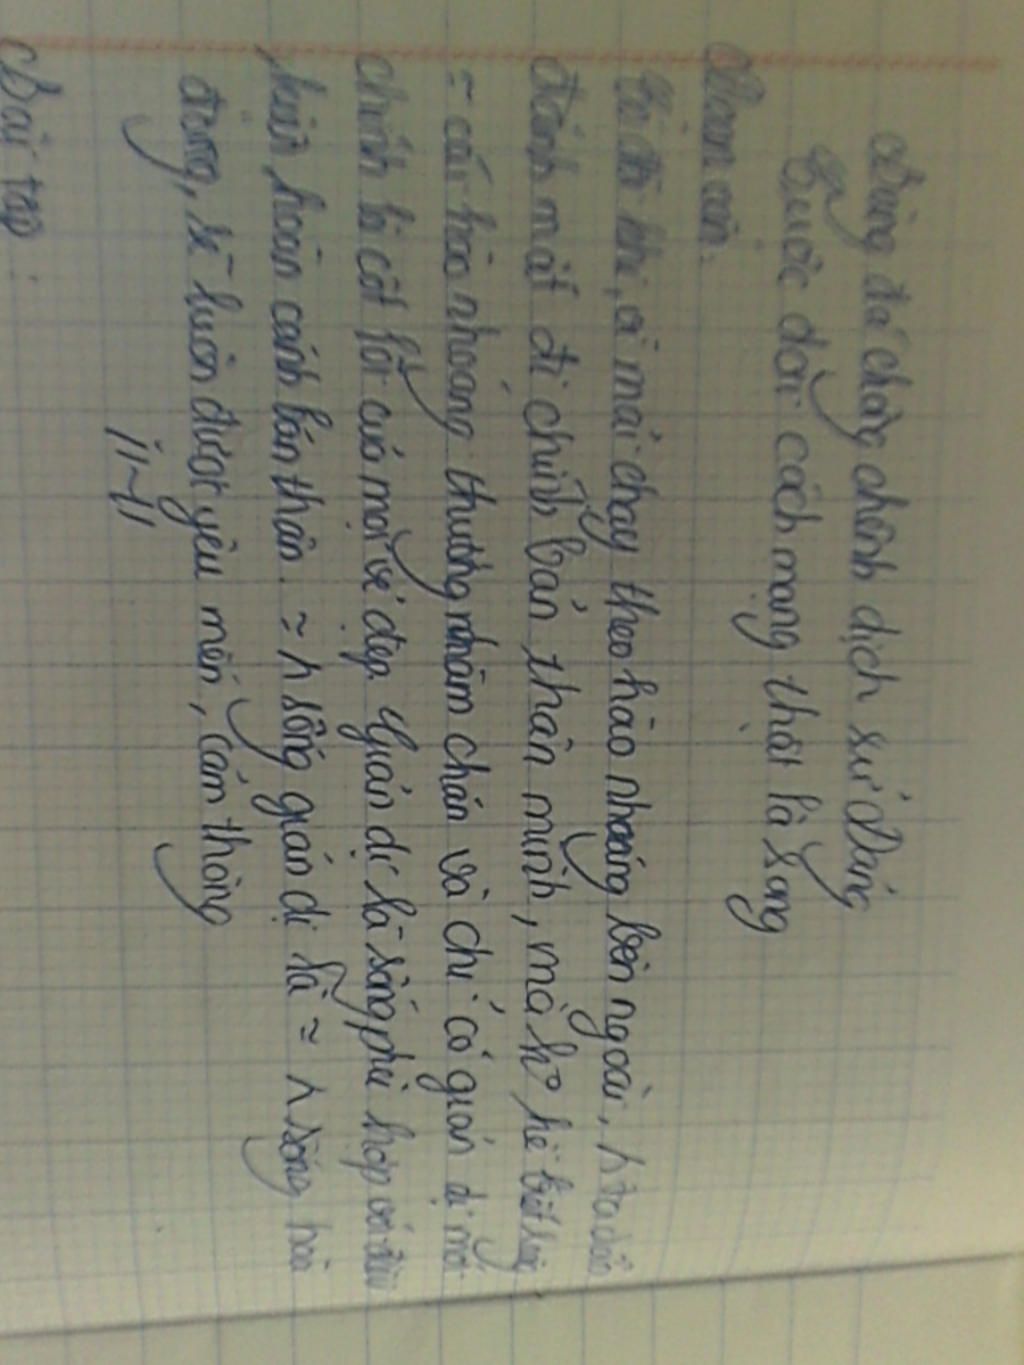 Đảng đã chàng chênh dịch sử Đảng
Cuộc đời cách mạng thật là sang
Đôi khi, vì mải chạy theo hào nhoáng bên ngoài,
đánh mất đi chính bản thân mình, mà ko hề biết rằng
= cái hào nhoáng thường nhàm chán và chỉ có giản dị mới
chính là cốt lõi của mọi vẻ đẹp. Giản dị là sống phù hợp với điều
kiện, hoàn cảnh bản thân. = ʌ sống giản dị là = ʌ sống hoà
đồng, sẽ luôn được yêu mến, cảm thông
Bài tập: